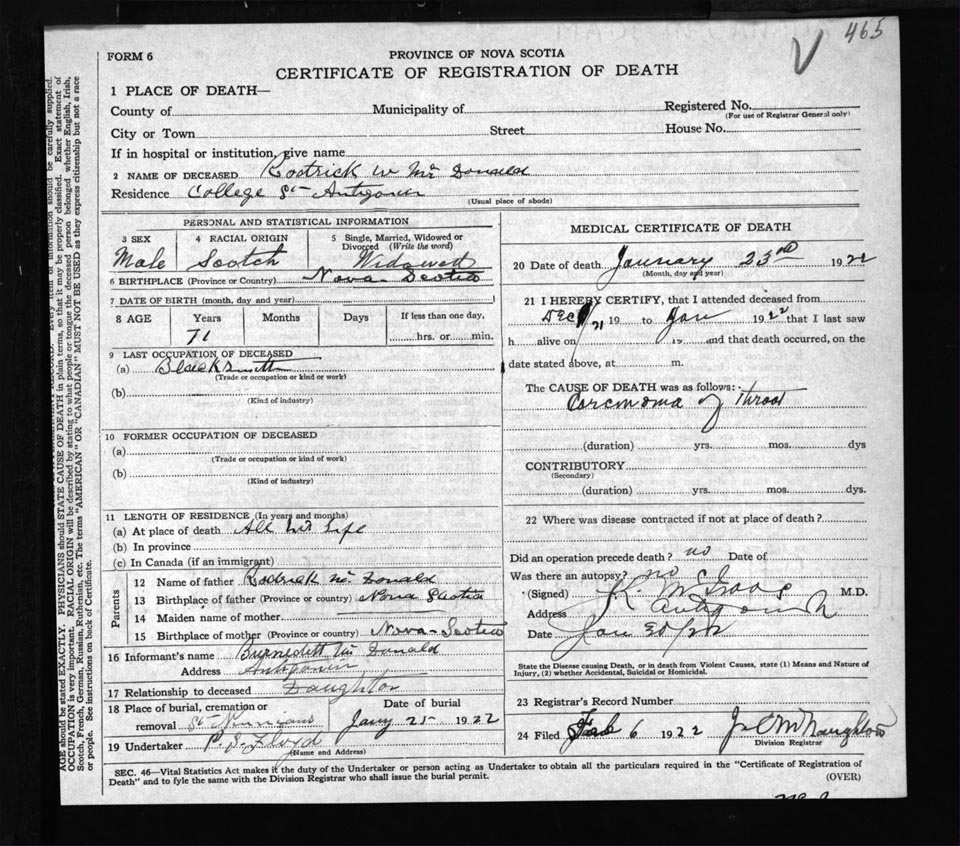 465
FORM 6
PROVINCE OF NOVA SCOTIA
CERTIFICATE OF REGISTRATION OF DEATH
1 PLACE OF DEATH—
County of Municipality of Registered No.
(For use of Registrar General only)
City or Town Street House No.
If in hospital or institution, give name
2 NAME OF DECEASED Rodrick W Mc Donald
Residence College St Antigonish
(Usual place of abode)
PERSONAL AND STATISTICAL INFORMATION
3 SEX 4 RACIAL ORIGIN 5 Single, Married, Widowed or Divorced (Write the word)
Male Scotch Widowed
6 BIRTHPLACE (Province or Country) Nova-Scotia
7 DATE OF BIRTH (month, day and year)
8 AGE Years Months Days If less than one day,
71 hrs. or min.
9 LAST OCCUPATION OF DECEASED
(a) Blacksmith
(Trade or occupation or kind or work)
(b)
(Kind of industry)
10 FORMER OCCUPATION OF DECEASED
(a)
(Trade or occupation or kind of work)
(b)
(Kind of industry)
11 LENGTH OF RESIDENCE (In years and months)
(a) At place of death All his Life
(b) In province
(c) In Canada (if an immigrant)
Parents
12 Name of father Rodrick Mc Donald
13 Birthplace of father (Province or country) Nova Scotia
14 Maiden name of mother
15 Birthplace of mother (Province or country) Nova-Scotia
16 Informant's name Mc Donald
Address
17 Relationship to deceased Daughter
18 Place of burial, cremation or Date of burial
removal St Ninians Jany 25 1922
19 Undertaker P. S. Floyd
(Name and Address)
MEDICAL CERTIFICATE OF DEATH
20 Date of death January 23rd 1922
(Month, day and year)
21 I HEREBY CERTIFY, that I attended deceased from
Dec /21 19 to Jan 1922 that I last saw
h alive on 19 and that death occurred, on the
date stated above, at m.
The CAUSE OF DEATH was as follows:
Carcinoma of Throat
(duration) yrs. mos. dys
CONTRIBUTORY
(Secondary)
(duration) yrs. mos. dys.
22 Where was disease contracted if not at place of death?
Did an operation precede death? no Date of
Was there an autopsy? no
(Signed) M.D.
Address Antigonish
Date Jan
State the Disease causing Death, or in death from Violent Causes, state (1) Means and Nature of
Injury, (2) whether Accidental, Suicidal or Homicidal.
23 Registrar's Record Number
24 Filed Feb 6 1922
Division Registrar
SEC. 46—Vital Statistics Act makes it the duty of the Undertaker or person acting as Undertaker to obtain all the particulars required in the "Certificate of Registration of
Death" and to fyle the same with the Division Registrar who shall issue the burial permit. (OVER)
AGE should be stated EXACTLY. PHYSICIANS should STATE CAUSE OF DEATH in plain terms, so that it may be properly classified. Exact statement of
OCCUPATION is very important. RACIAL ORIGIN will be described by stating to what people or tongue the deceased person belonged whether English, Irish,
Scotch, French, German, Russian, Ruthenian, etc. The terms "AMERICAN" OR "CANADIAN" MUST NOT BE USED as they express citizenship but not a race
or people. See instructions on back of Certificate.